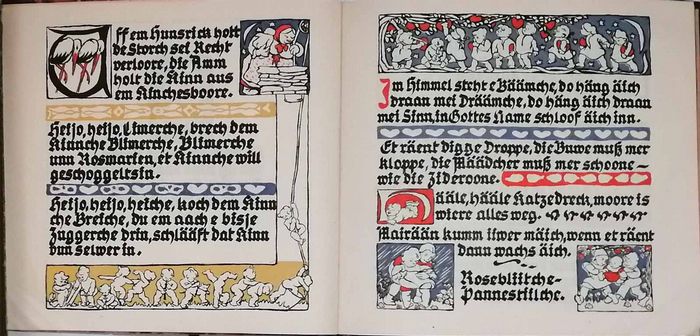 Uff em Hunsrick hott
de Storch sei Recht
verloore, die Amm
holt die Kinn aus
em Kinchesboore.
Heijo, heijo, Limerche, brech dem
Kinnche Blimerche, Blimerche
unn Rosmarien, et Kinnche will
geschoggelt sin.
Heijo, heijo, heiche, koch dem Kinn
che Breiche, du em aach e bisje
Zuggerche drin, schlääft dat Kinn
vun selwer in.
Im Himmel steht e Bäämche, do häng äich
draan mei Dräämche, do häng äich draan
mei Sinn, in Gottes Name schloof äich inn.
Et räent digge Droppe, die Buwe muß mer
kloppe, die Määdcher muß mer schoone –
wie die Zideroone.
Hääle, hääle Katzedreck, moore is
wiere alles weg.
Mairään kumm iwer mäich, wenn et räent
dann wachs äich.
Roseblittche-
Pannestilche.